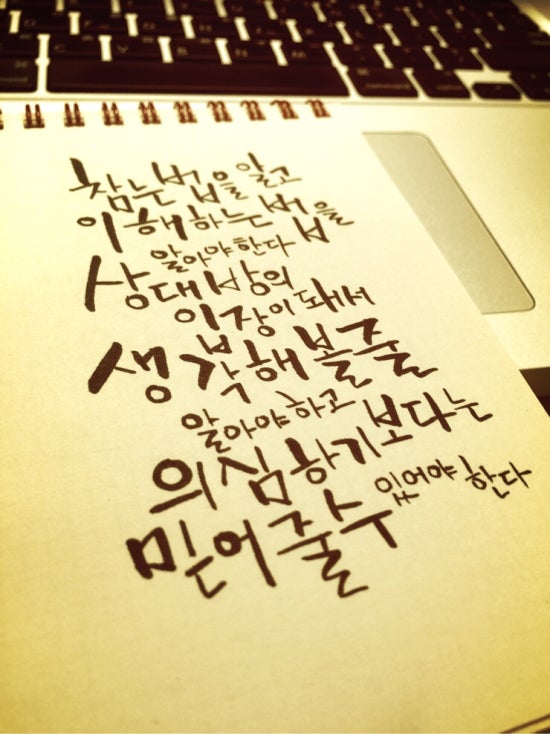 참는법을 알고
이해하는 법을
알아야한다
상대방의
입장이 돼서
생각해볼줄
알아야하고
의심하기보다는
믿어줄수 있어야 한다